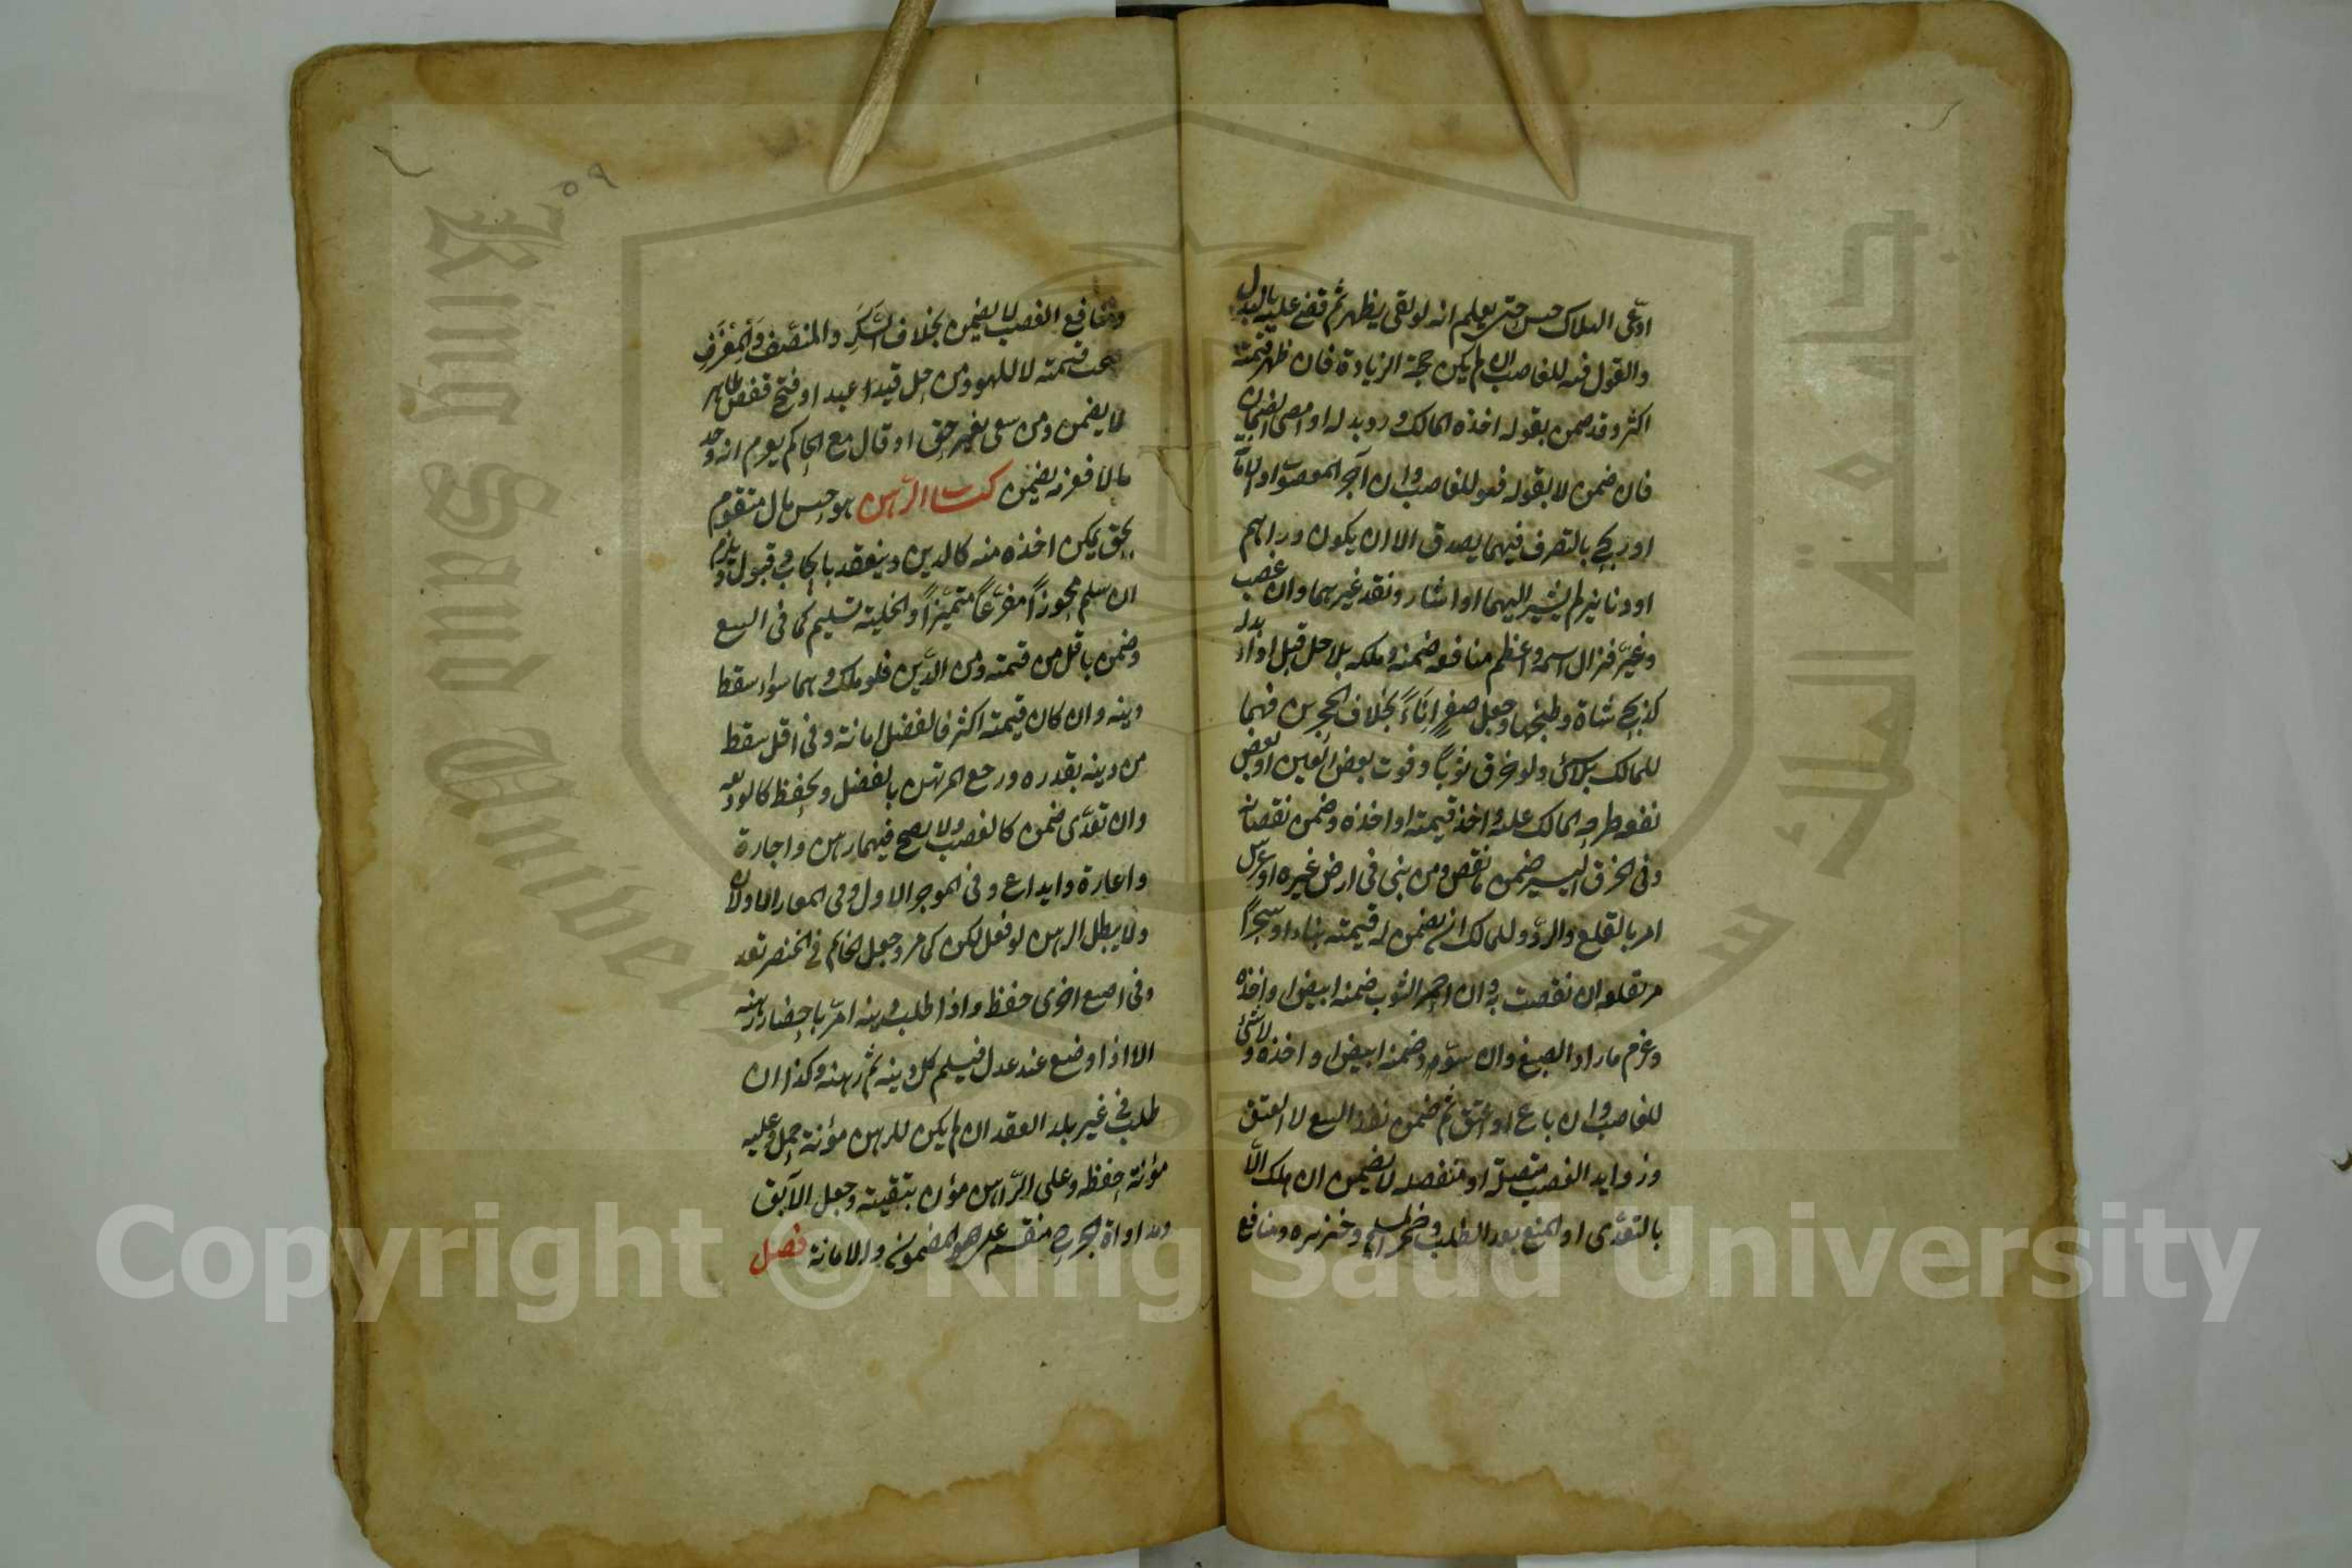 ادّعى الهلاك حبس حتى يعلم انه لو بقى يظهر ثم قضى عليه بالبدل
والقول فيه للغاصب ان لم يكن حجة الزيادة فان ظهر قيمته
اكثر وقد ضمن بقوله اخذه المالك ورد بدله او امضى الضمان
فان ضمن لا بقوله فهو للغاصب وان آجر المغصوب او الامانة
او ربح بالتصرف فيهما يصدق الا ان يكون دراهم
او دنانير لم يشير اليهما او اشار ونقد غيرهما وان غصب
وغيّر فزال اسمه واعظم منافعه ضمنه وملكه بلا حل قبل اداء بدله
كذبح شاة وطبخها وجعل صفر اناءً بخلاف الحجرين فهما
للمالك بلا شئ ولو خرق ثوباً وفوت بعض العين او بعض
نفعه طرحه المالك عليه واخذ قيمته او اخذه وضمن نقصانه
وفى الخرق اليسير ضمن ما نقص ومن بنى فى ارض غيره او غرس
امر بالقلع والرد وللمالك ان يضمن له قيمته بناء او شجراً
امر بقلعه ان نقصت به وان احمر الثوب ضمنه ابيض او اخذه
وغرم ما زاد الصبغ وان سوّد ضمنه ابيض او اخذه ولا شئ
للغاصب وان باع او اعتق ثم ضمن نفذ البيع لا العتق
وزوايد الغصب متصلة او منفصلة لا يضمن ان هلك الّا
بالتعدّى او المنع بعد الطلب وخمر المسلم وخنزيره ومنافع
ومنافع الغصب لا يضمن بخلاف السَّكَر والمنصّف والمعزف
يجب قيمته لا للهو ومن حل قيد عبد او فتح قفص طاير
لا يضمن ومن سعى بغير حق او قال مع الحاكم يغرم انه وجد
مالا فغرمه يضمن كتاب الرهن هو حبس مال متقوم
بحق يمكن اخذه منه كالدين وينعقد بايجاب وقبول ويلزم
ان سلم محوزاً مفرّغاً متميّزاً والتخلية تسليم كما فى البيع
وضمن باقل من قيمته ومن الدّين فلو هلك وهما سواء سقط
دينه وان كان قيمته اكثر فالفضل امانة وفى اقل سقط
من دينه بقدره ورجع المرتهن بالفضل ويحفظ كالوديعه
وان تعدّى ضمن كالغصب ولا يصح فيهما رهن واجارة
واعارة وايداع وفى الموجر الاول وفى المعار الاولان
ولا يبطل الرهن لو فعل لكن كما مر وجعل الخاتم فى الخنصر تعد
وفى اصبع اخرى حفظ واذا طلب دينه امر باحضار رهنه
الا اذا وضع عند عدل فيسلم كل دينه ثم رهنه وكذا ان
طلب فى غير بلد العقد ان لم يكن للرهن مؤنة حمل وعليه
مؤنة حفظه وعلى الرّاهن مؤن تبقيته وجعل الآبق
ومداواة الجرح منقسم على المضمون والامانة فصل